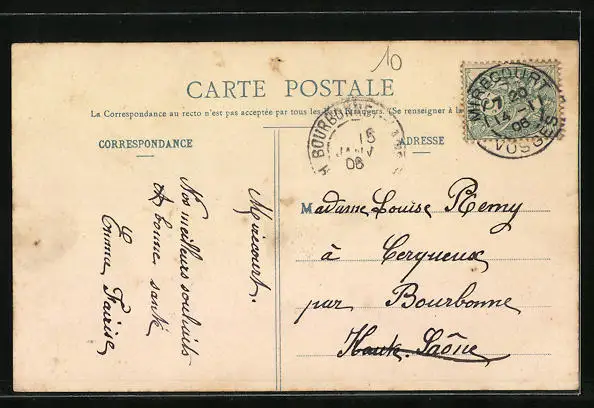 10
CARTE POSTALE
La Correspondance au recto n'est pas acceptée par tous les Pays étrangers. (Se renseigner à la
CORRESPONDANCE
ADRESSE
BOURBONNE
15
JANV
06
MIRECOURT
14 -1
06
VOSGES
Mirecourt.
Nos meilleurs souhaits
de bonne santé
Emma
Madame Louise Remy
à Cerqueux
par Bourbonne
Haute-Saône